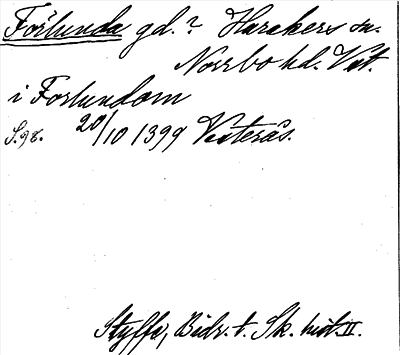 Forlunda gd.? Harakers sn.
Norrbo hd. Vst.
i Forlundom
S. 98. 20/10 1399 Vesterås.
Styffe, Bidr. t. Sk. hist. II.